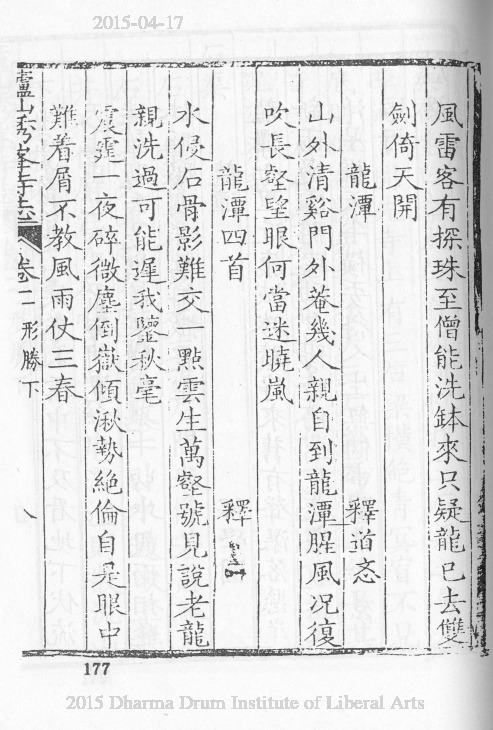 2015-04-17
風雷客有探珠至僧能洗鉢來只疑龍已去雙
劍倚天開
龍潭 釋道忞
山外清谿門外菴幾人親自到龍潭腥風况復
吹長壑望眼何當迷曉嵐
龍潭四首 釋
水侵石骨影難交一點雲生萬壑號見說老龍
親洗過可能遲我鑒秋毫
震霆一夜碎微塵倒嶽傾湫勢絕倫自是眼中
難着屑不教風雨仗三春
廬山秀峰寺志 卷二 形勝下 八
177
2015 Dharma Drum Institute of Liberal Arts